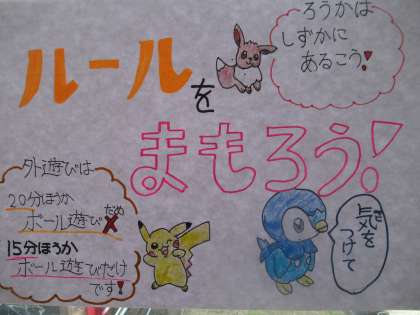 ルールを
まもろう!
ろうかは
しずかに
あるこう!
外遊びは
20分ほうか
ボール遊び✗
だめ
15分ほうか
ボール遊びだけ
です!
気を
き
つけて